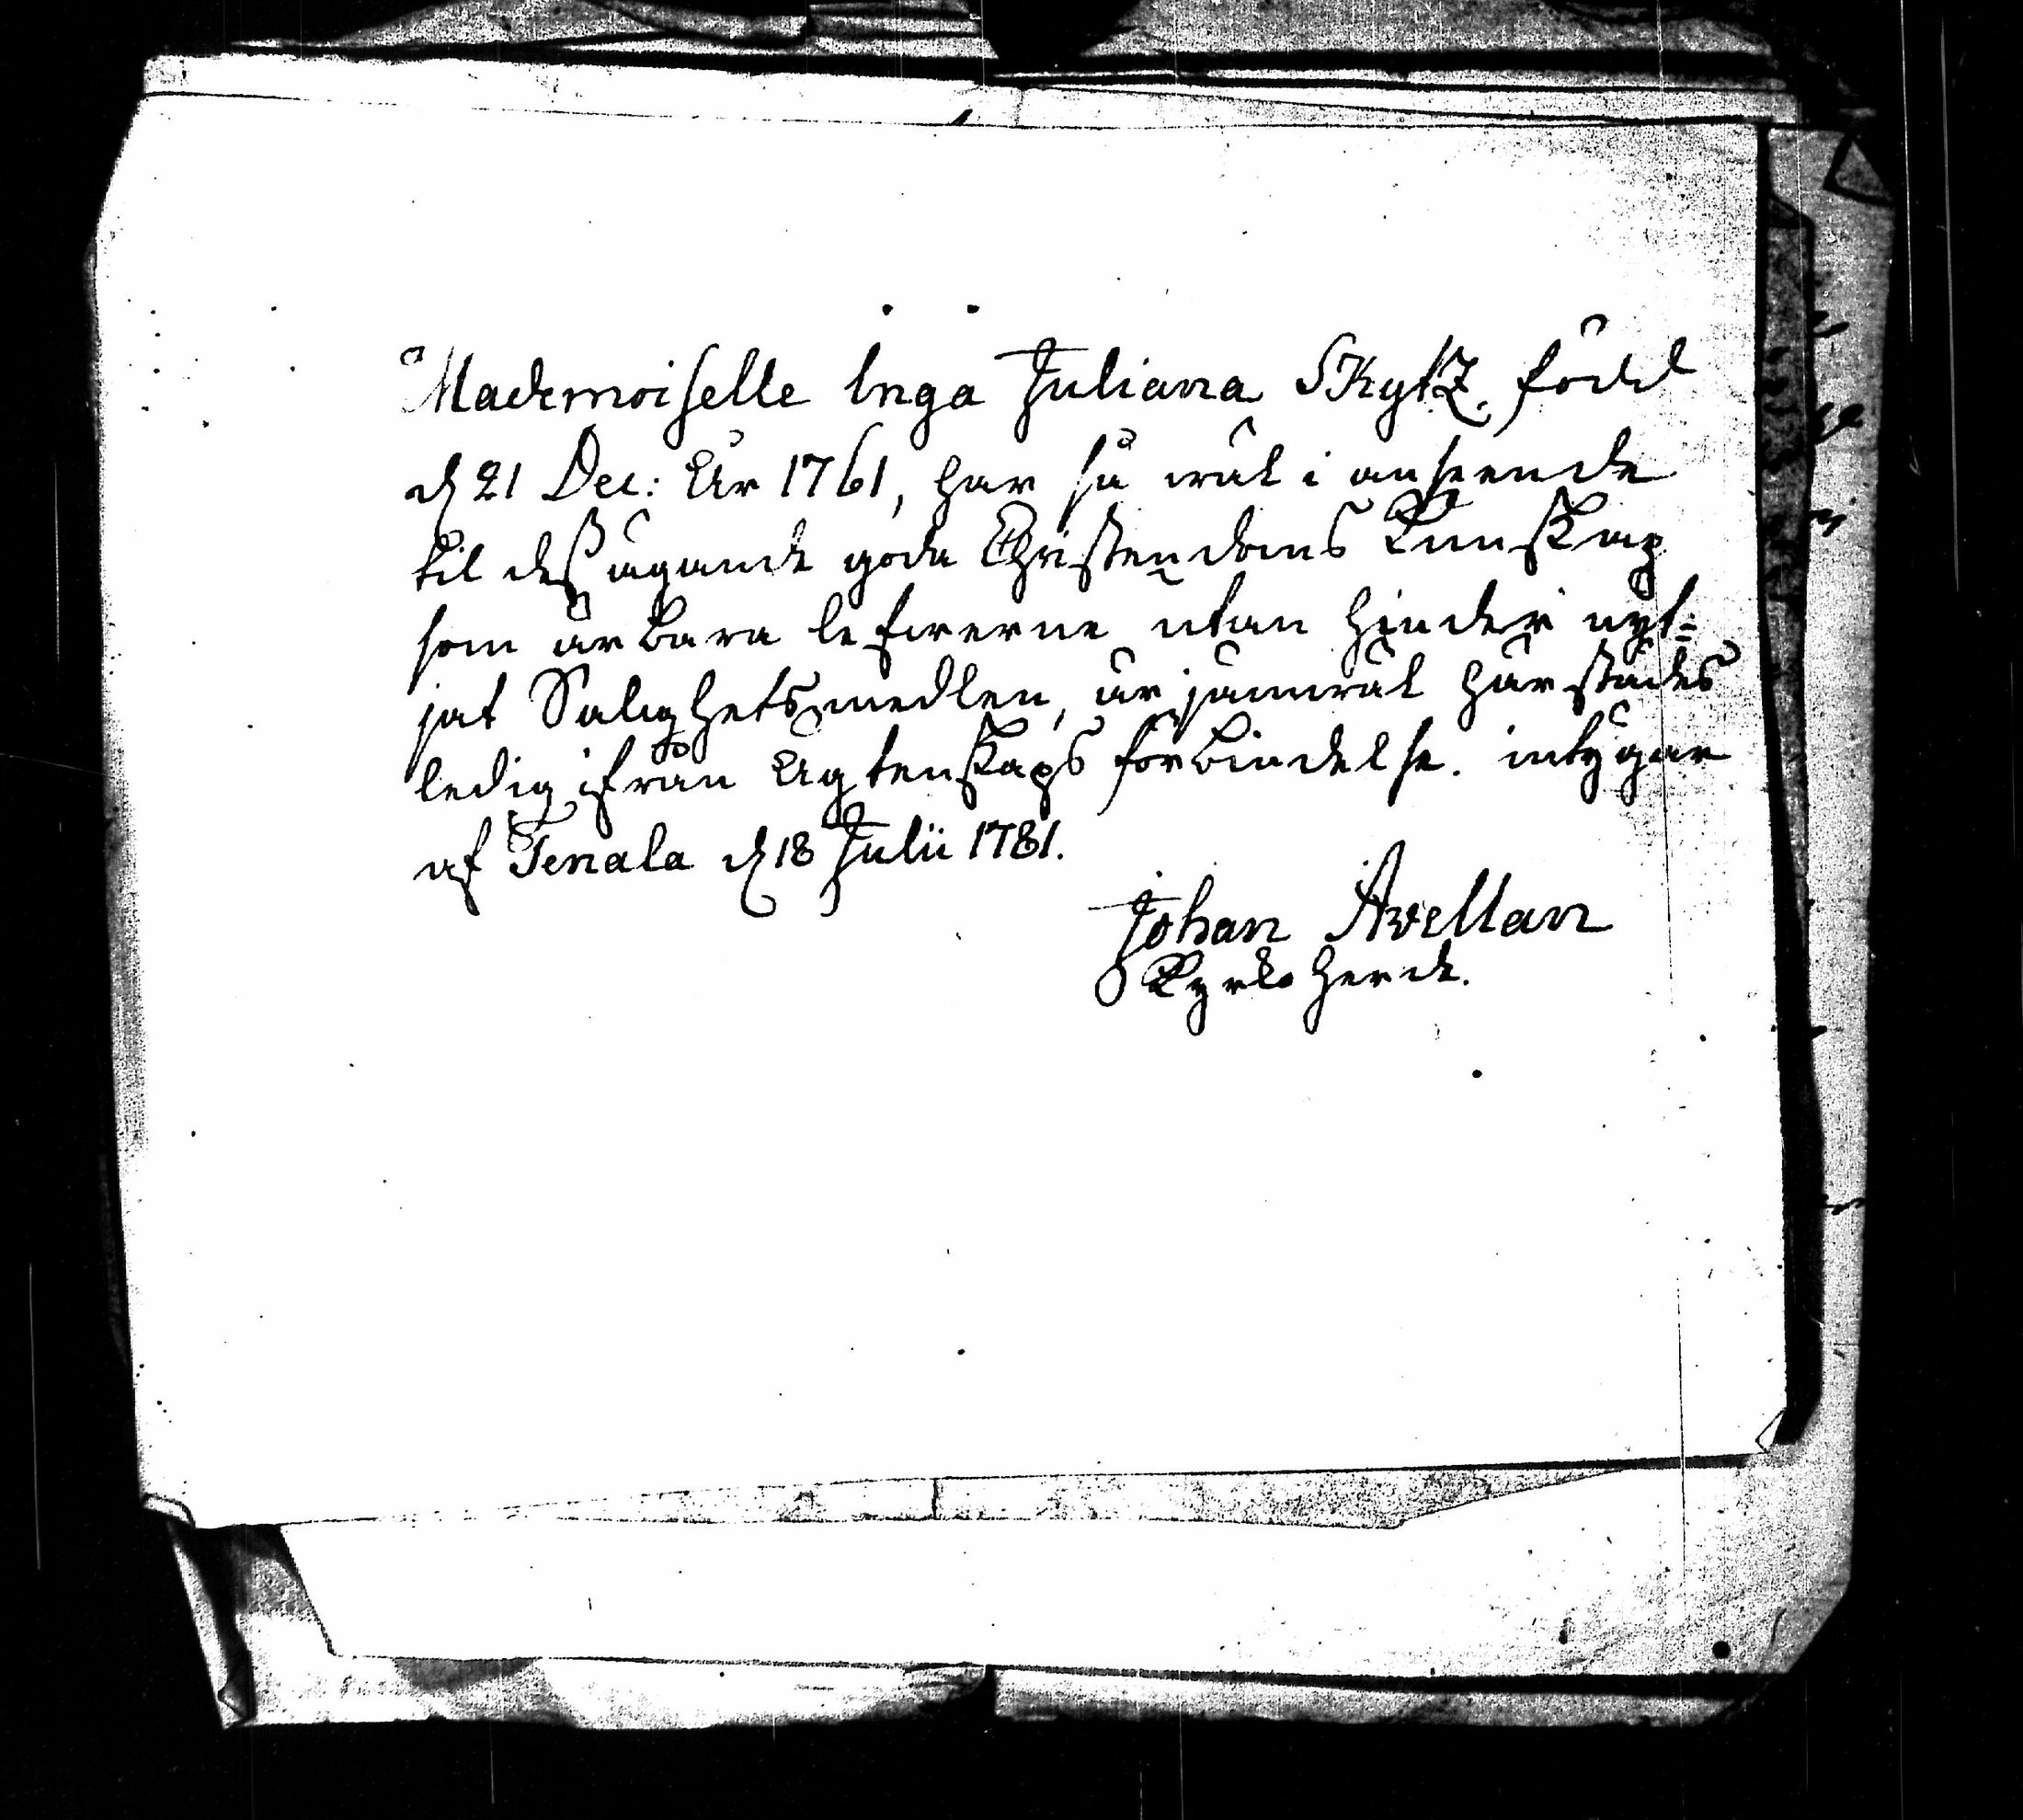 Mademoiselle Inga Juliana Skytz, född
d 21 Dec: År 1761, har så wäl i anseende
til dess ägande goda Christendoms Kunskap
som ärbara lefwerne utan hinder nyt=
jat Salighetsmedlen, är jämwäl härstädes
ledig ifrån Ägtenskaps förbindelse. intygar
af Tenala d 18 Julii 1781.
Johan Avellan
Kyrkoherde.